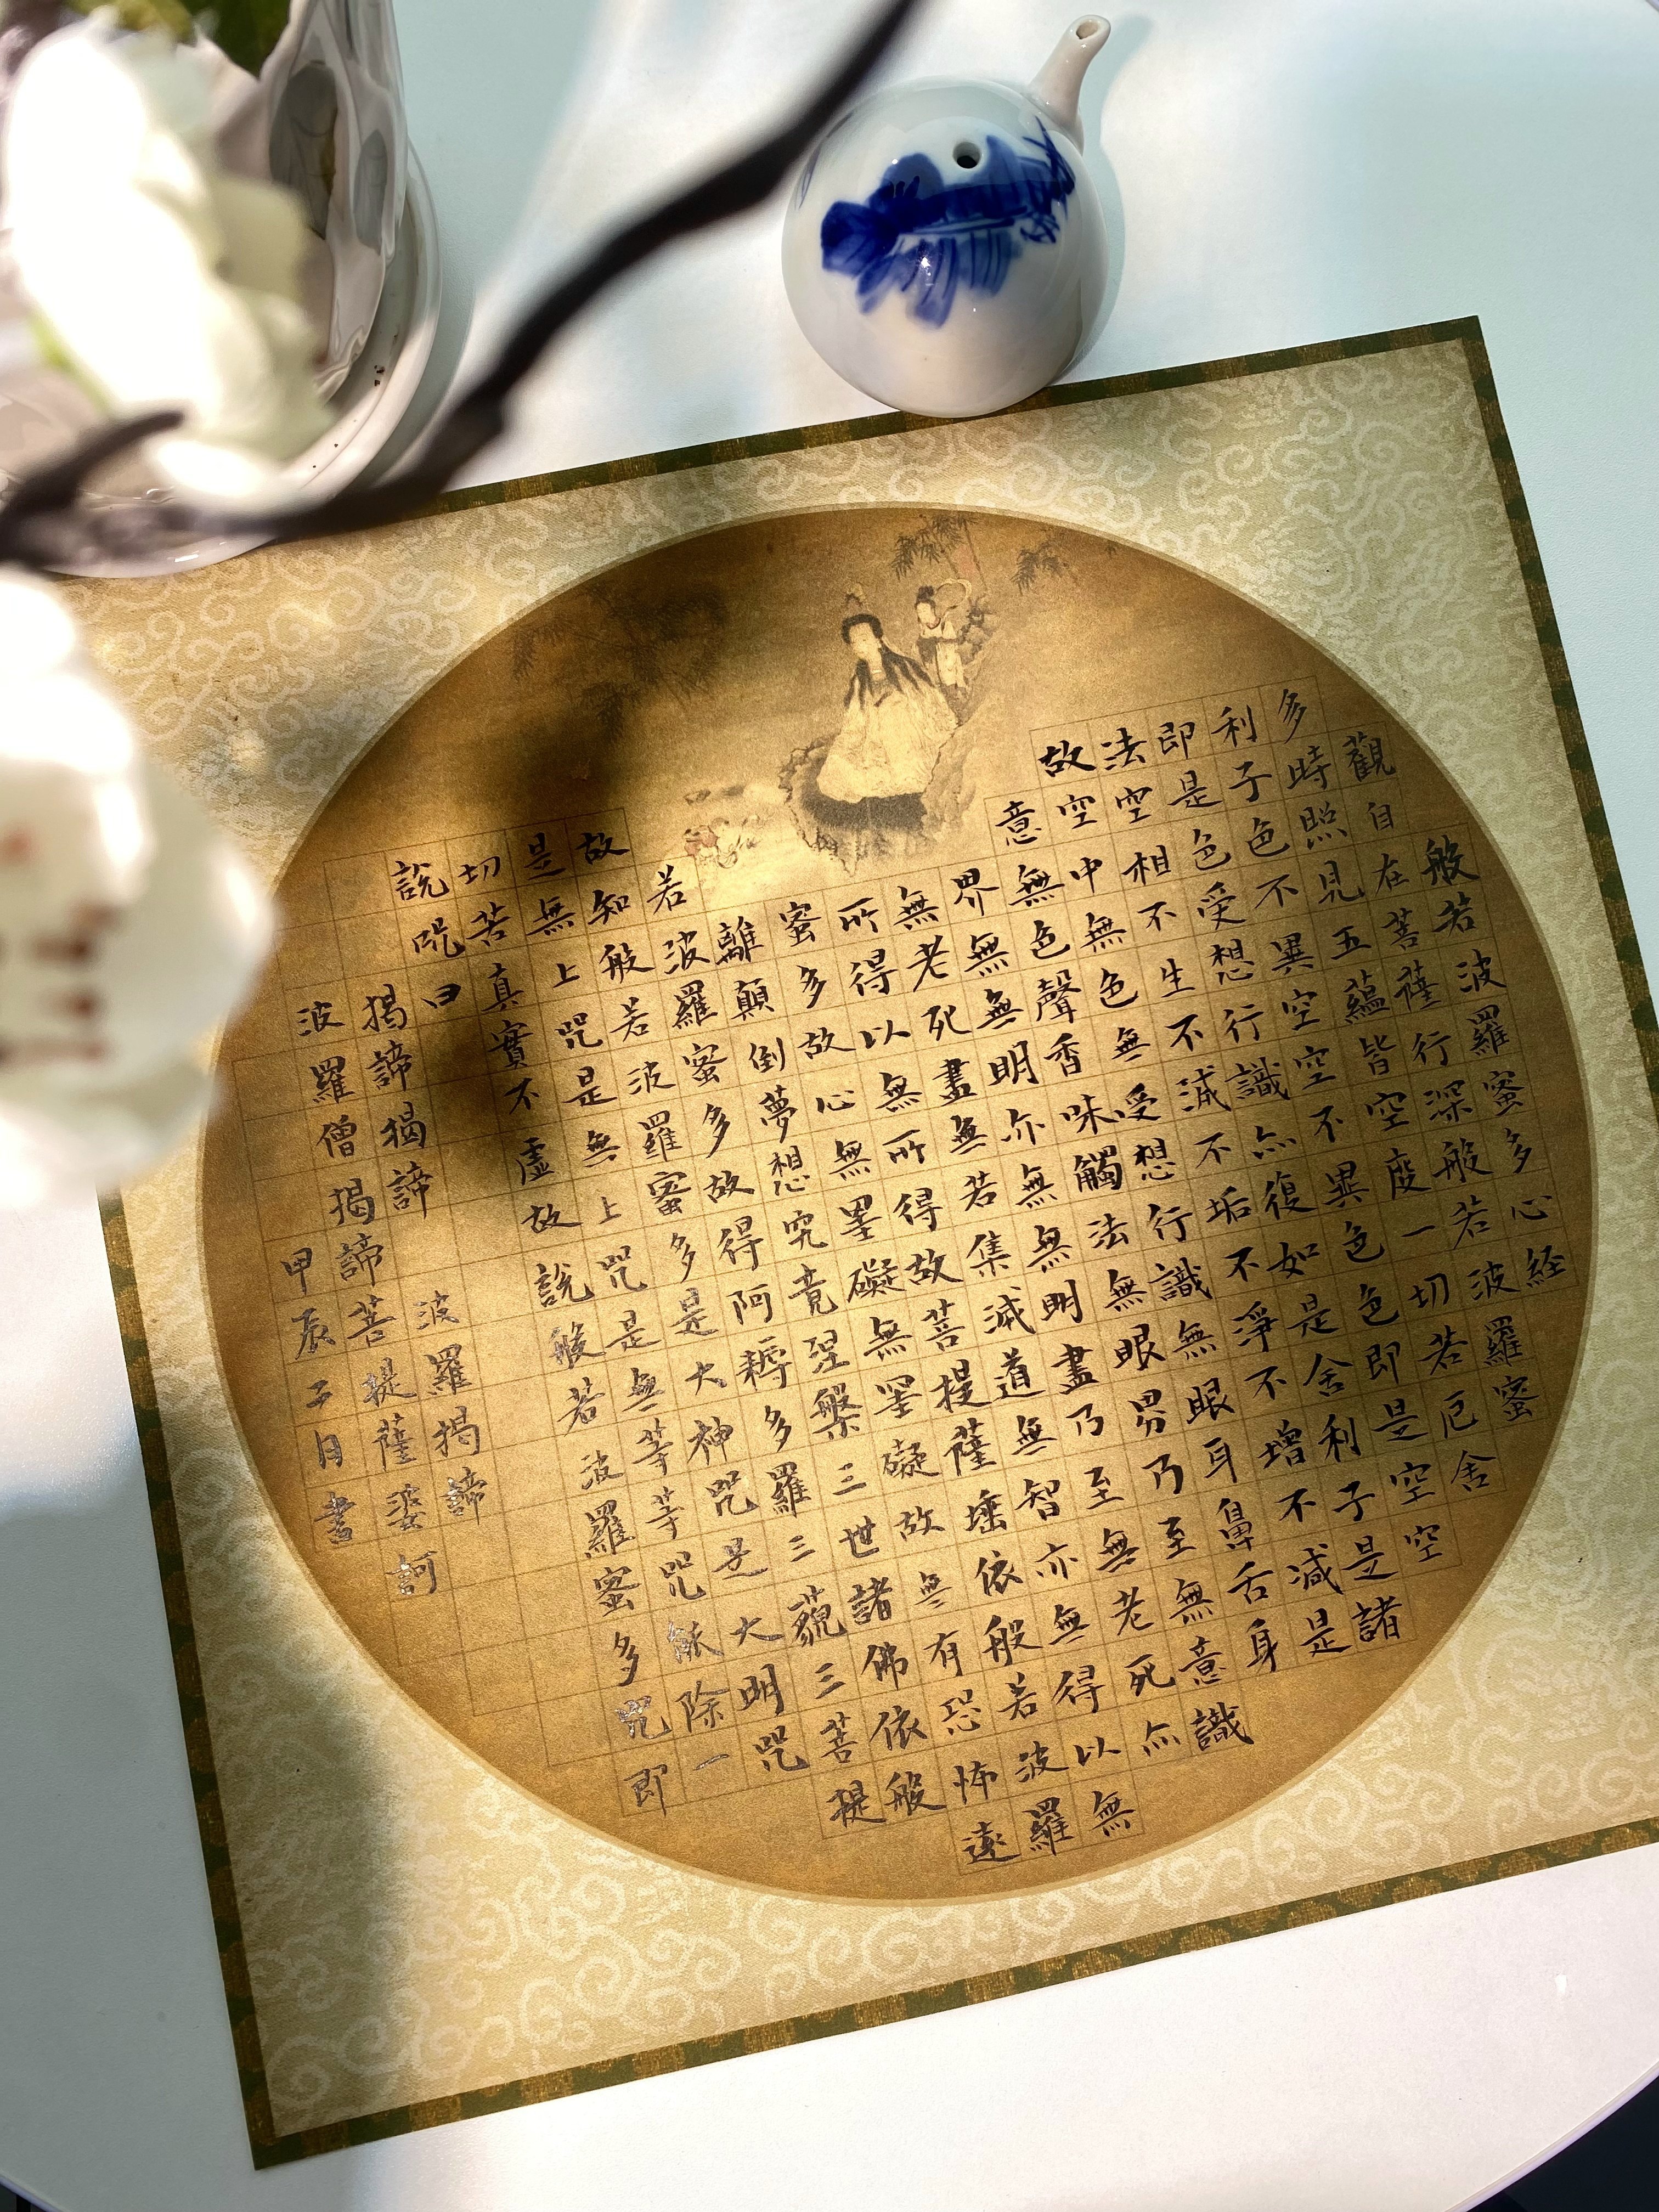 般若波羅蜜多心経
觀自在菩薩行深般若波羅蜜
多時照見五蘊皆空度一切苦厄舍
利子色不異空空不異色色即是空空
即是色受想行識亦復如是舍利子是諸
法空相不生不滅不垢不淨不增不減是
故空中無色無受想行識無眼耳鼻舌身
意無色聲香味觸法無眼界乃至無意識
界無無明亦無無明盡乃至無老死亦
無老死盡無苦集滅道無智亦無得以無
所得以無所得故菩提薩埵依般若波羅
蜜多故心無罣礙無罣礙故無有恐怖遠
離顛倒夢想究竟涅槃三世諸佛依般
若波羅蜜多故得阿耨多羅三藐三菩提
故知般若波羅蜜多是大神咒是大明咒
是無上咒是無上咒是無等等咒能除一
切苦真實不虛故說般若波羅蜜多咒即
說咒曰
揭諦揭諦 波羅揭諦
波羅僧揭諦菩提薩婆訶
甲辰子月書